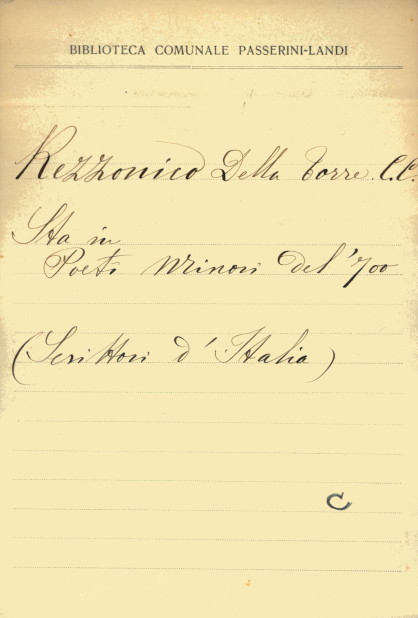 BIBLIOTECA COMUNALE PASSERINI-LANDI
Rezzonico Della Torre C.C.
Sta in
Poeti Minori del '700
(Scrittori d'Italia)
C